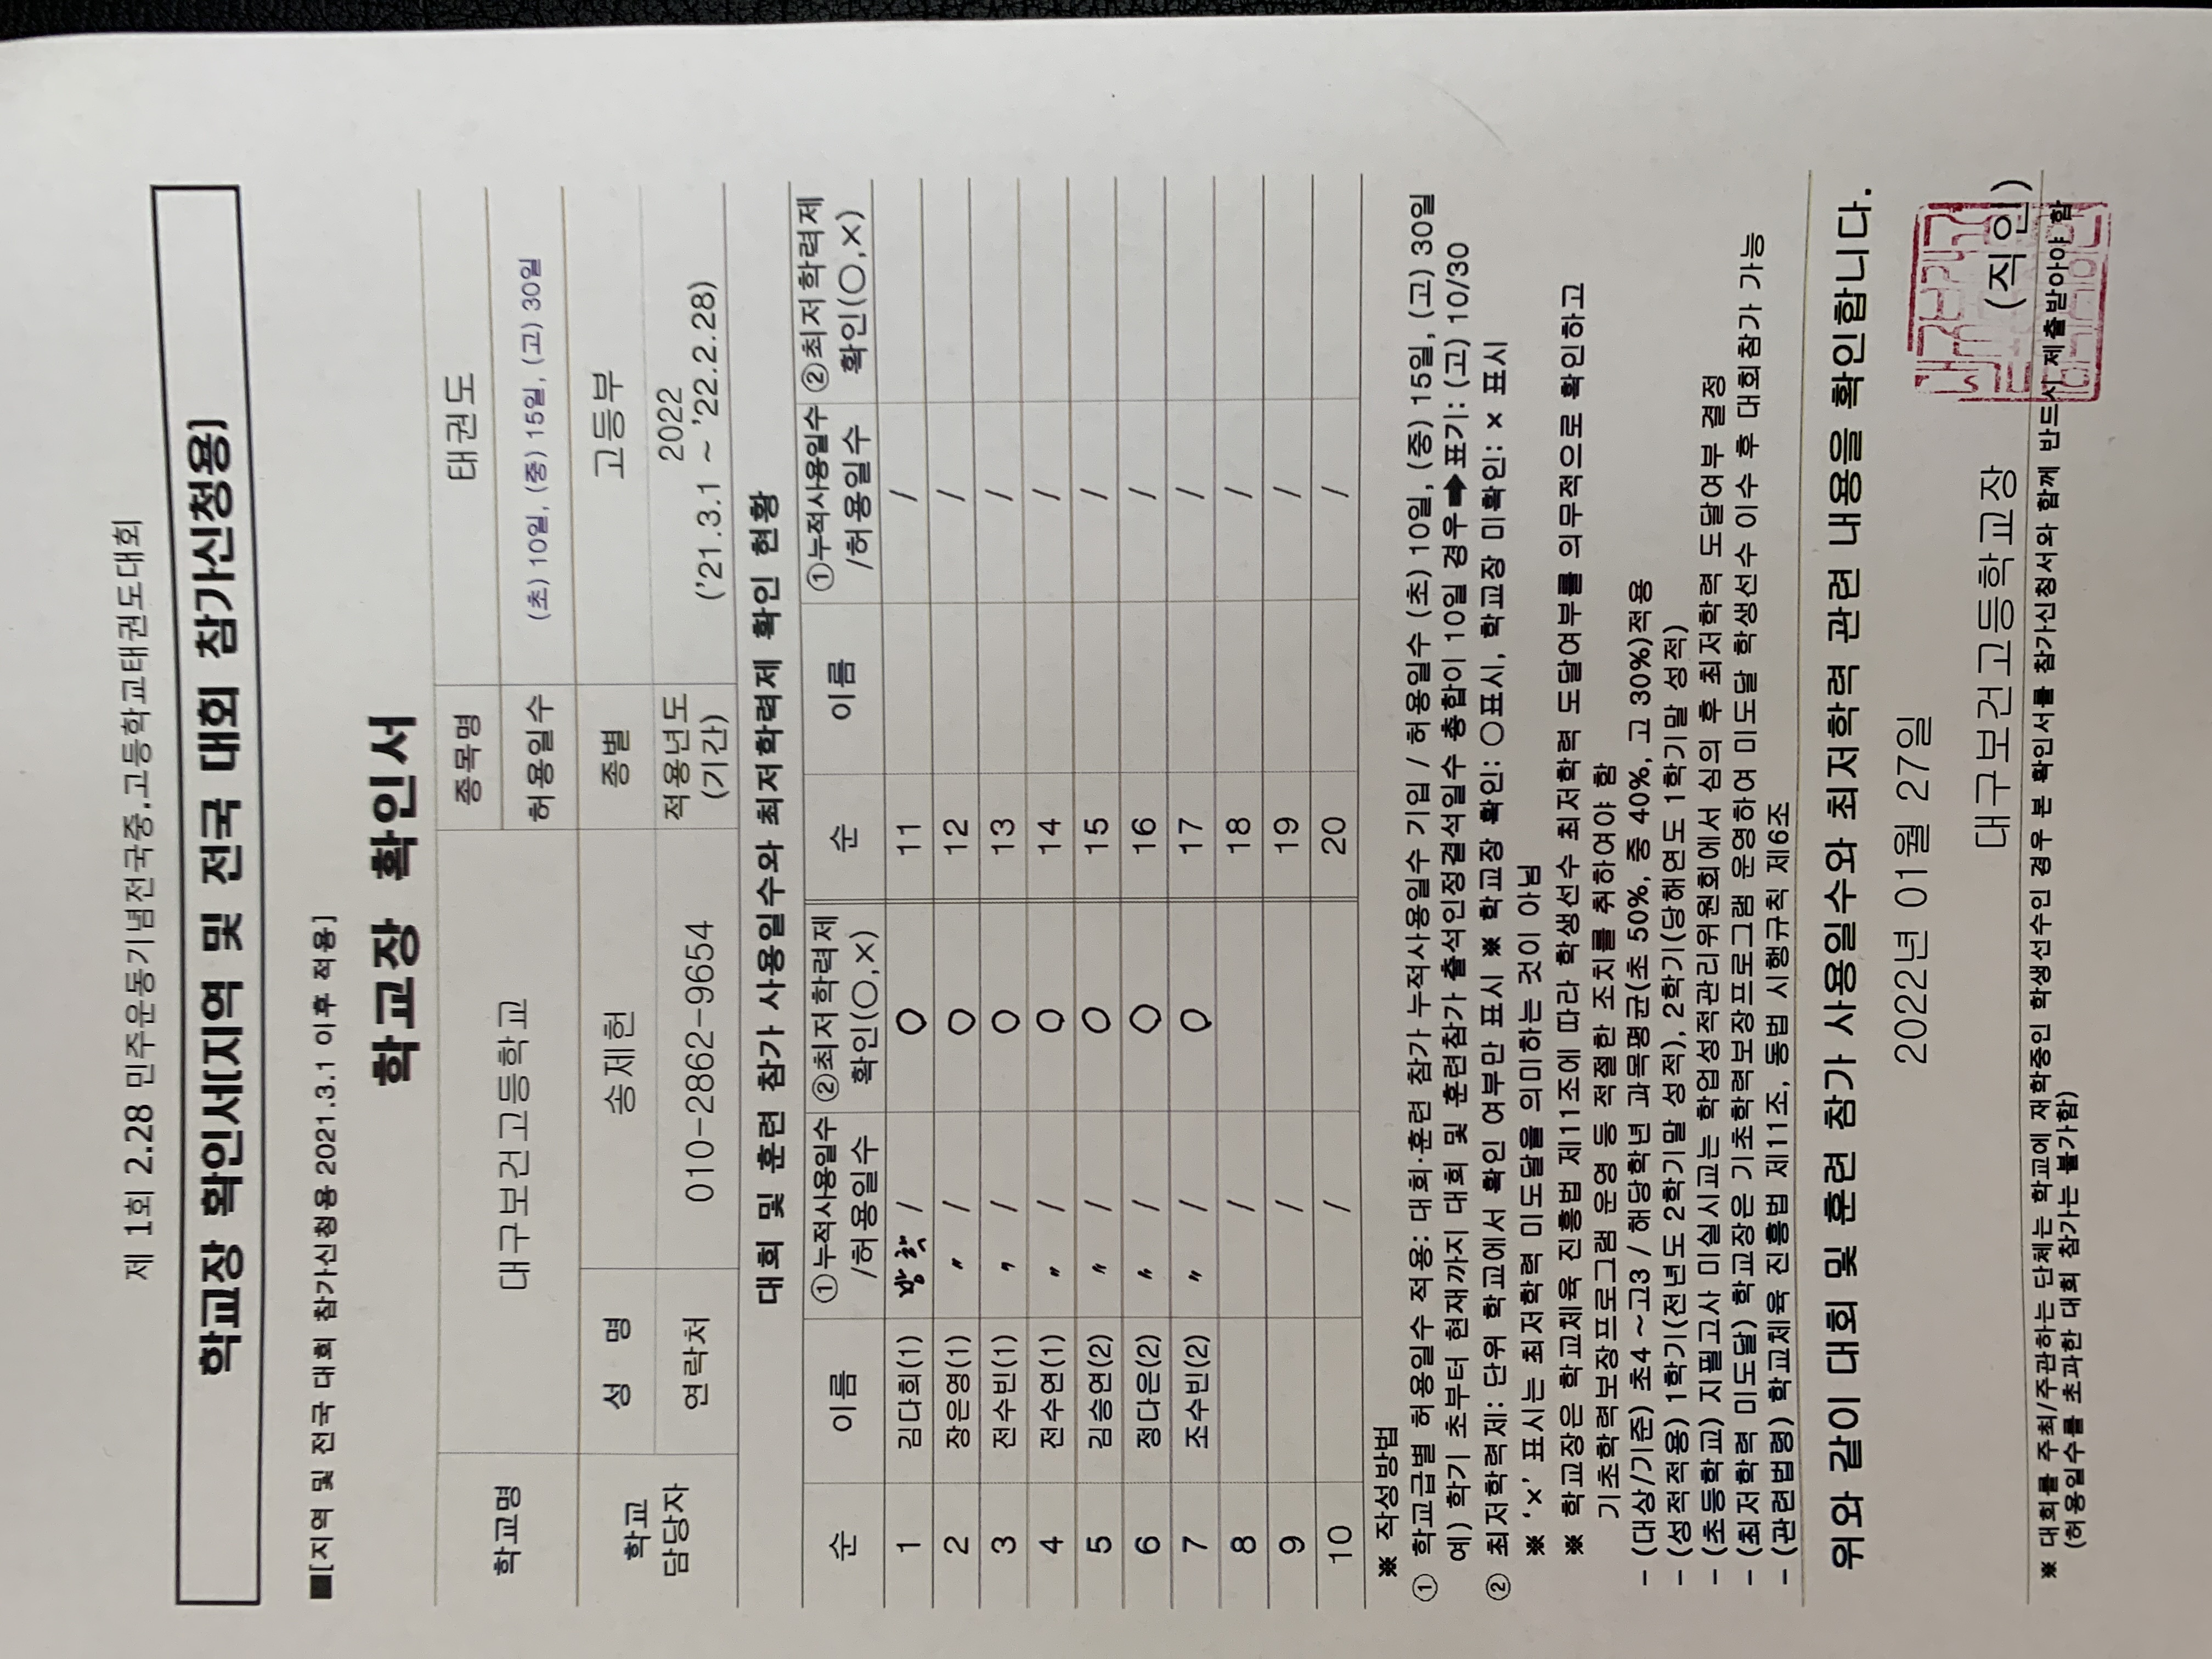 제 1회 2.28 민주운동기념전국중.고등학교태권도대회
학교장 확인서(지역 및 전국 대회 참가신청용)
■[지역 및 전국 대회 참가신청용 2021.3.1 이후 적용]
학교장 확인서
학교명 대구보건고등학교 종목명 태권도
허용일수 (초) 10일, (중) 15일, (고) 30일
학교 담당자 성 명 송제헌 종별 고등부
연락처 010-2862-9654 적용년도 (기간) 2022 ('21.3.1 ~ '22.2.28)
대회 및 훈련 참가 사용일수와 최저학력제 확인 현황
순 이름 ①누적사용일수 /허용일수 ②최저학력제 확인(○,×) 순 이름 ①누적사용일수 /허용일수 ②최저학력제 확인(○,×)
1 김다희(1) 방학 / ○ 11 /
2 장은영(1) 〃 / ○ 12 /
3 전수빈(1) 〃 / ○ 13 /
4 전수연(1) 〃 / ○ 14 /
5 김승연(2) 〃 / ○ 15 /
6 정다은(2) 〃 / ○ 16 /
7 조수빈(2) 〃 / ○ 17 /
8 / 18 /
9 / 19 /
10 / 20 /
※ 작성방법
① 학교급별 허용일수 적용: 대회·훈련 참가 누적사용일수 기입 / 허용일수 (초) 10일, (중) 15일, (고) 30일
예) 학기 초부터 현재까지 대회 및 훈련참가 출석인정결석일수 총합이 10일 경우➡표기: (고) 10/30
② 최저학력제: 단위 학교에서 확인 여부만 표시 ※ 학교장 확인: ○표시, 학교장 미확인: × 표시
※ '×' 표시는 최저학력 미도달을 의미하는 것이 아님
※ 학교장은 학교체육 진흥법 제11조에 따라 학생선수 최저학력 도달여부를 의무적으로 확인하고
기초학력보장프로그램 운영 등 적절한 조치를 취하여야 함
- (대상/기준) 초4 ~고3 / 해당학년 과목평균(초 50%, 중 40%, 고 30%)적용
- (성적적용) 1학기(전년도 2학기말 성적), 2학기(당해연도 1학기말 성적)
- (초등학교) 지필고사 미실시교는 학업성적관리위원회에서 심의 후 최저학력 도달여부 결정
- (최저학력 미도달) 학교장은 기초학력보장프로그램 운영하여 미도달 학생선수 이수 후 대회참가 가능
- (관련법령) 학교체육 진흥법 제11조, 동법 시행규칙 제6조
위와 같이 대회 및 훈련 참가 사용일수와 최저학력 관련 내용을 확인합니다.
2022년 01월 27일
대구보건고등학교장 (직인)
※ 대회를 주최/주관하는 단체는 학교에 재학중인 학생선수인 경우 본 확인서를 참가신청서와 함께 반드시 제출받아야 함
(허용일수를 초과한 대회 참가는 불가함)